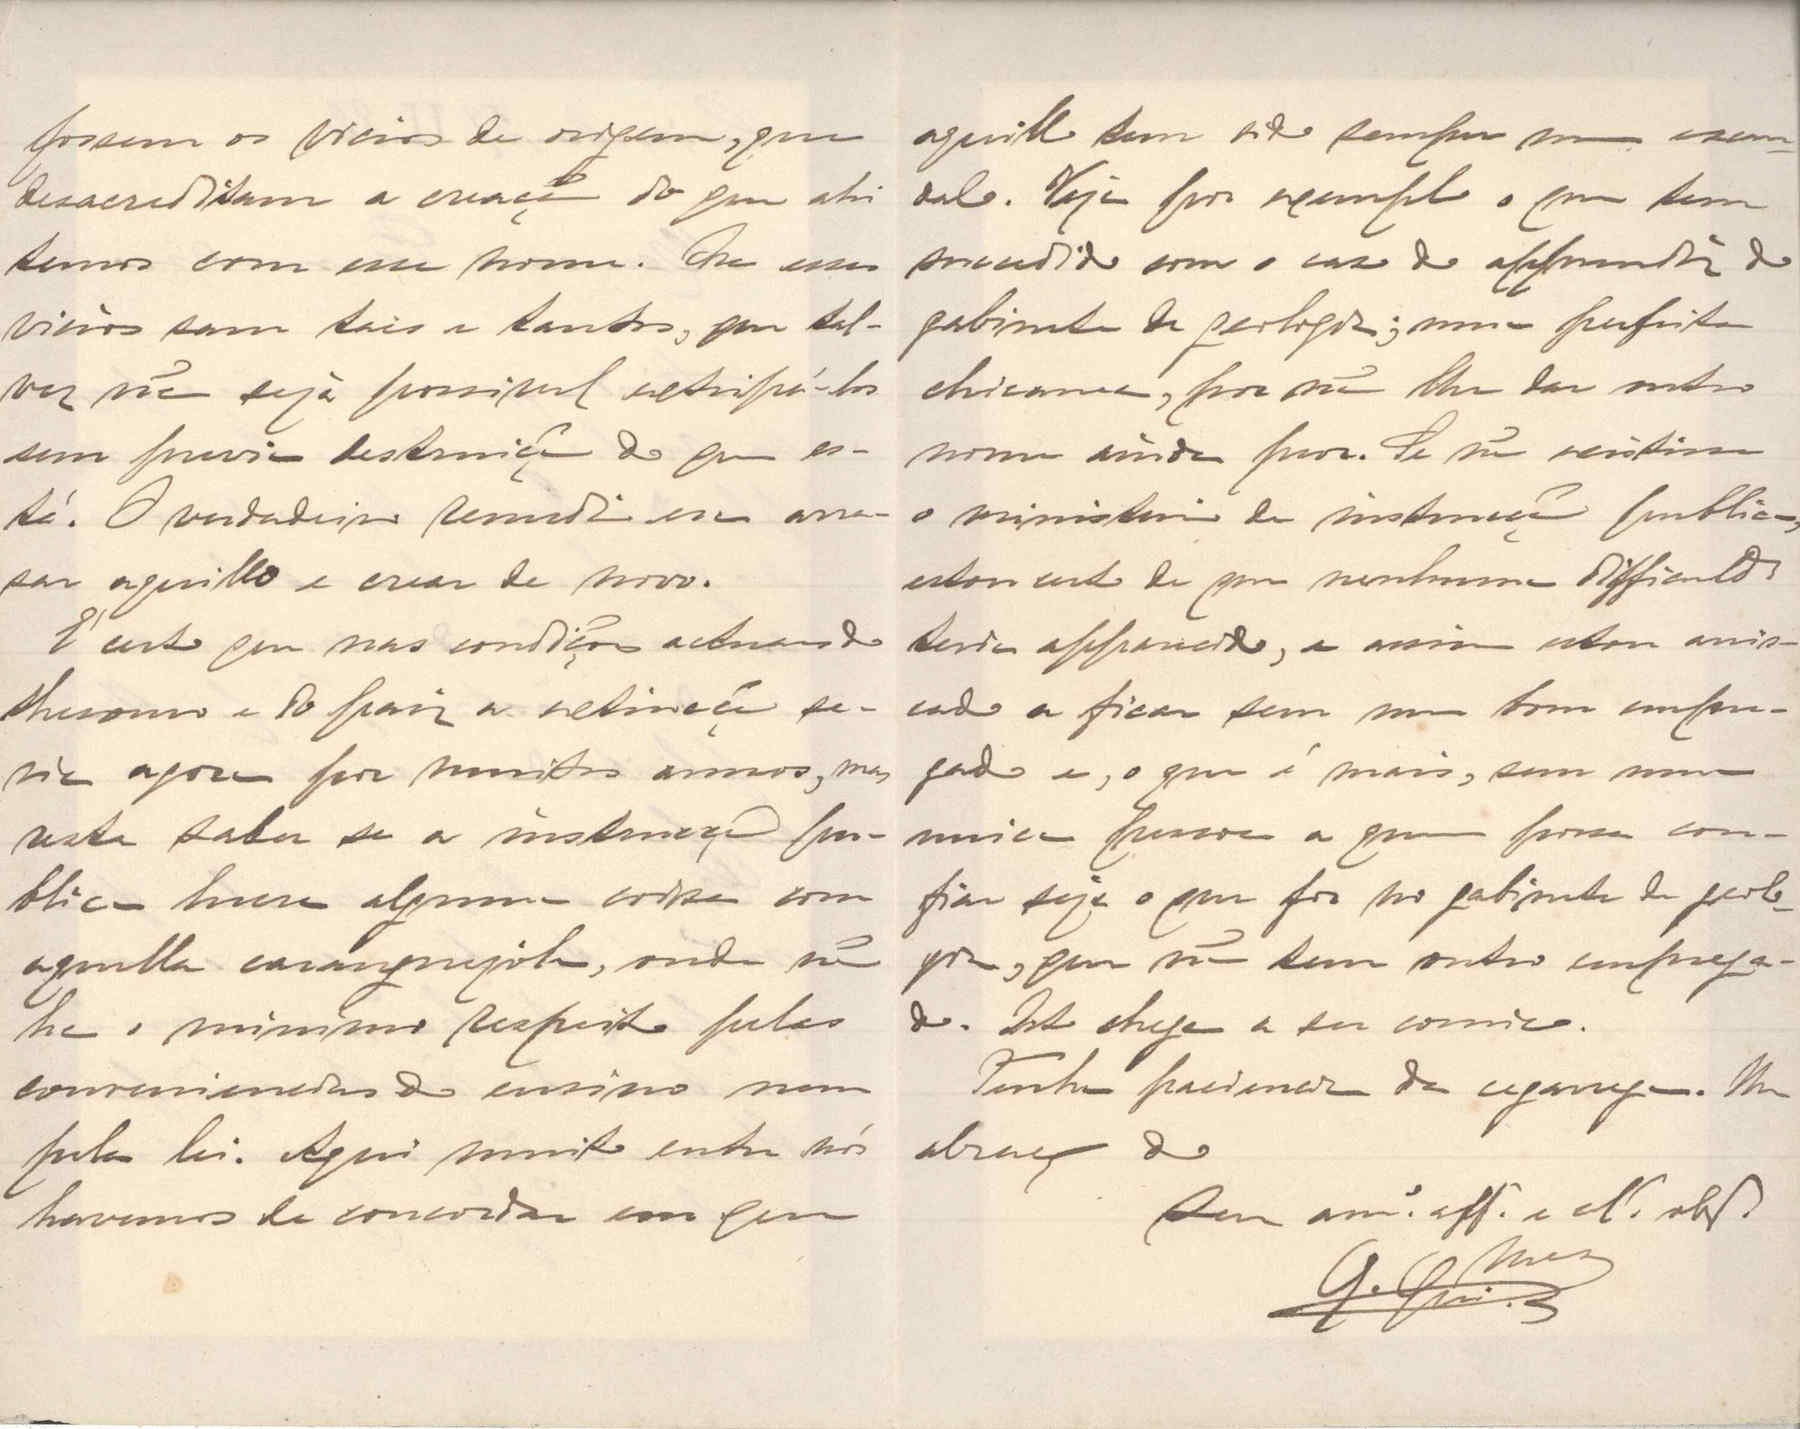 fossem os vicios de origem, que
desacreditam a creação do que ahi
temos com esse nome. Mas esses
vicios sam taes e tantos, que tal-
vez não seja possivel extirpá-los
sem previa destruição do que es-
tá. O verdadeiro remedio era arra-
sar aquillo e crear de novo.
É certo que nas condições actuaes do
thesouro e do paiz a extincção se-
ria agora por muitos annos, mas
resta saber se a instrucção pu-
blica lucra alguma coisa com
aquella caranguejola, onde não
ha o minimo respeito pelas
conveniencias do ensino nem
pela lei. Aqui muito entre nós
havemos de concordar em que
aquillo tem sido sempre um escan-
dalo. Veja por exemplo o que tem
succedido com o caso do apprendiz do
gabinete de geologia; uma perfeita
chicana, por não lhe dar outro
nome ainda peor. Se não existisse
o ministerio da instrucção publica,
estou certo de que nenhuma difficuldade
teria apparecido, e assim estou arris-
cado a ficar sem um bom empre-
gado e, o que é mais, sem uma
unica pessoa a quem possa con-
fiar seja o que for no gabinete de geolo-
gia, que não tem outro emprega-
do. Isto chega a ser comico.
Tenha paciencia da cegarrega. Um
abraço do
Seu am.º aff.º e cl.ª obg.º
G. Guim.es